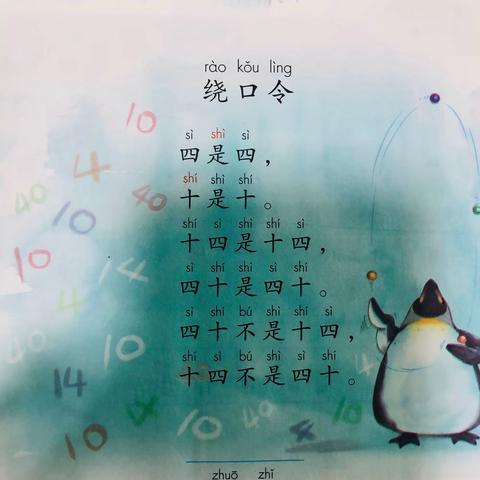 rào kǒu lìng
绕口令
sì shì sì
四是四，
shí shì shí
十是十。
shí sì shì shí sì
十四是十四，
sì shí shì sì shí
四十是四十。
sì shí bú shì shí sì
四十不是十四，
shí sì bú shì sì shí
十四不是四十。
10
4
40
40
10
10
14
4
40
10
14
14
10
40
10
10
4
zhuō zhī